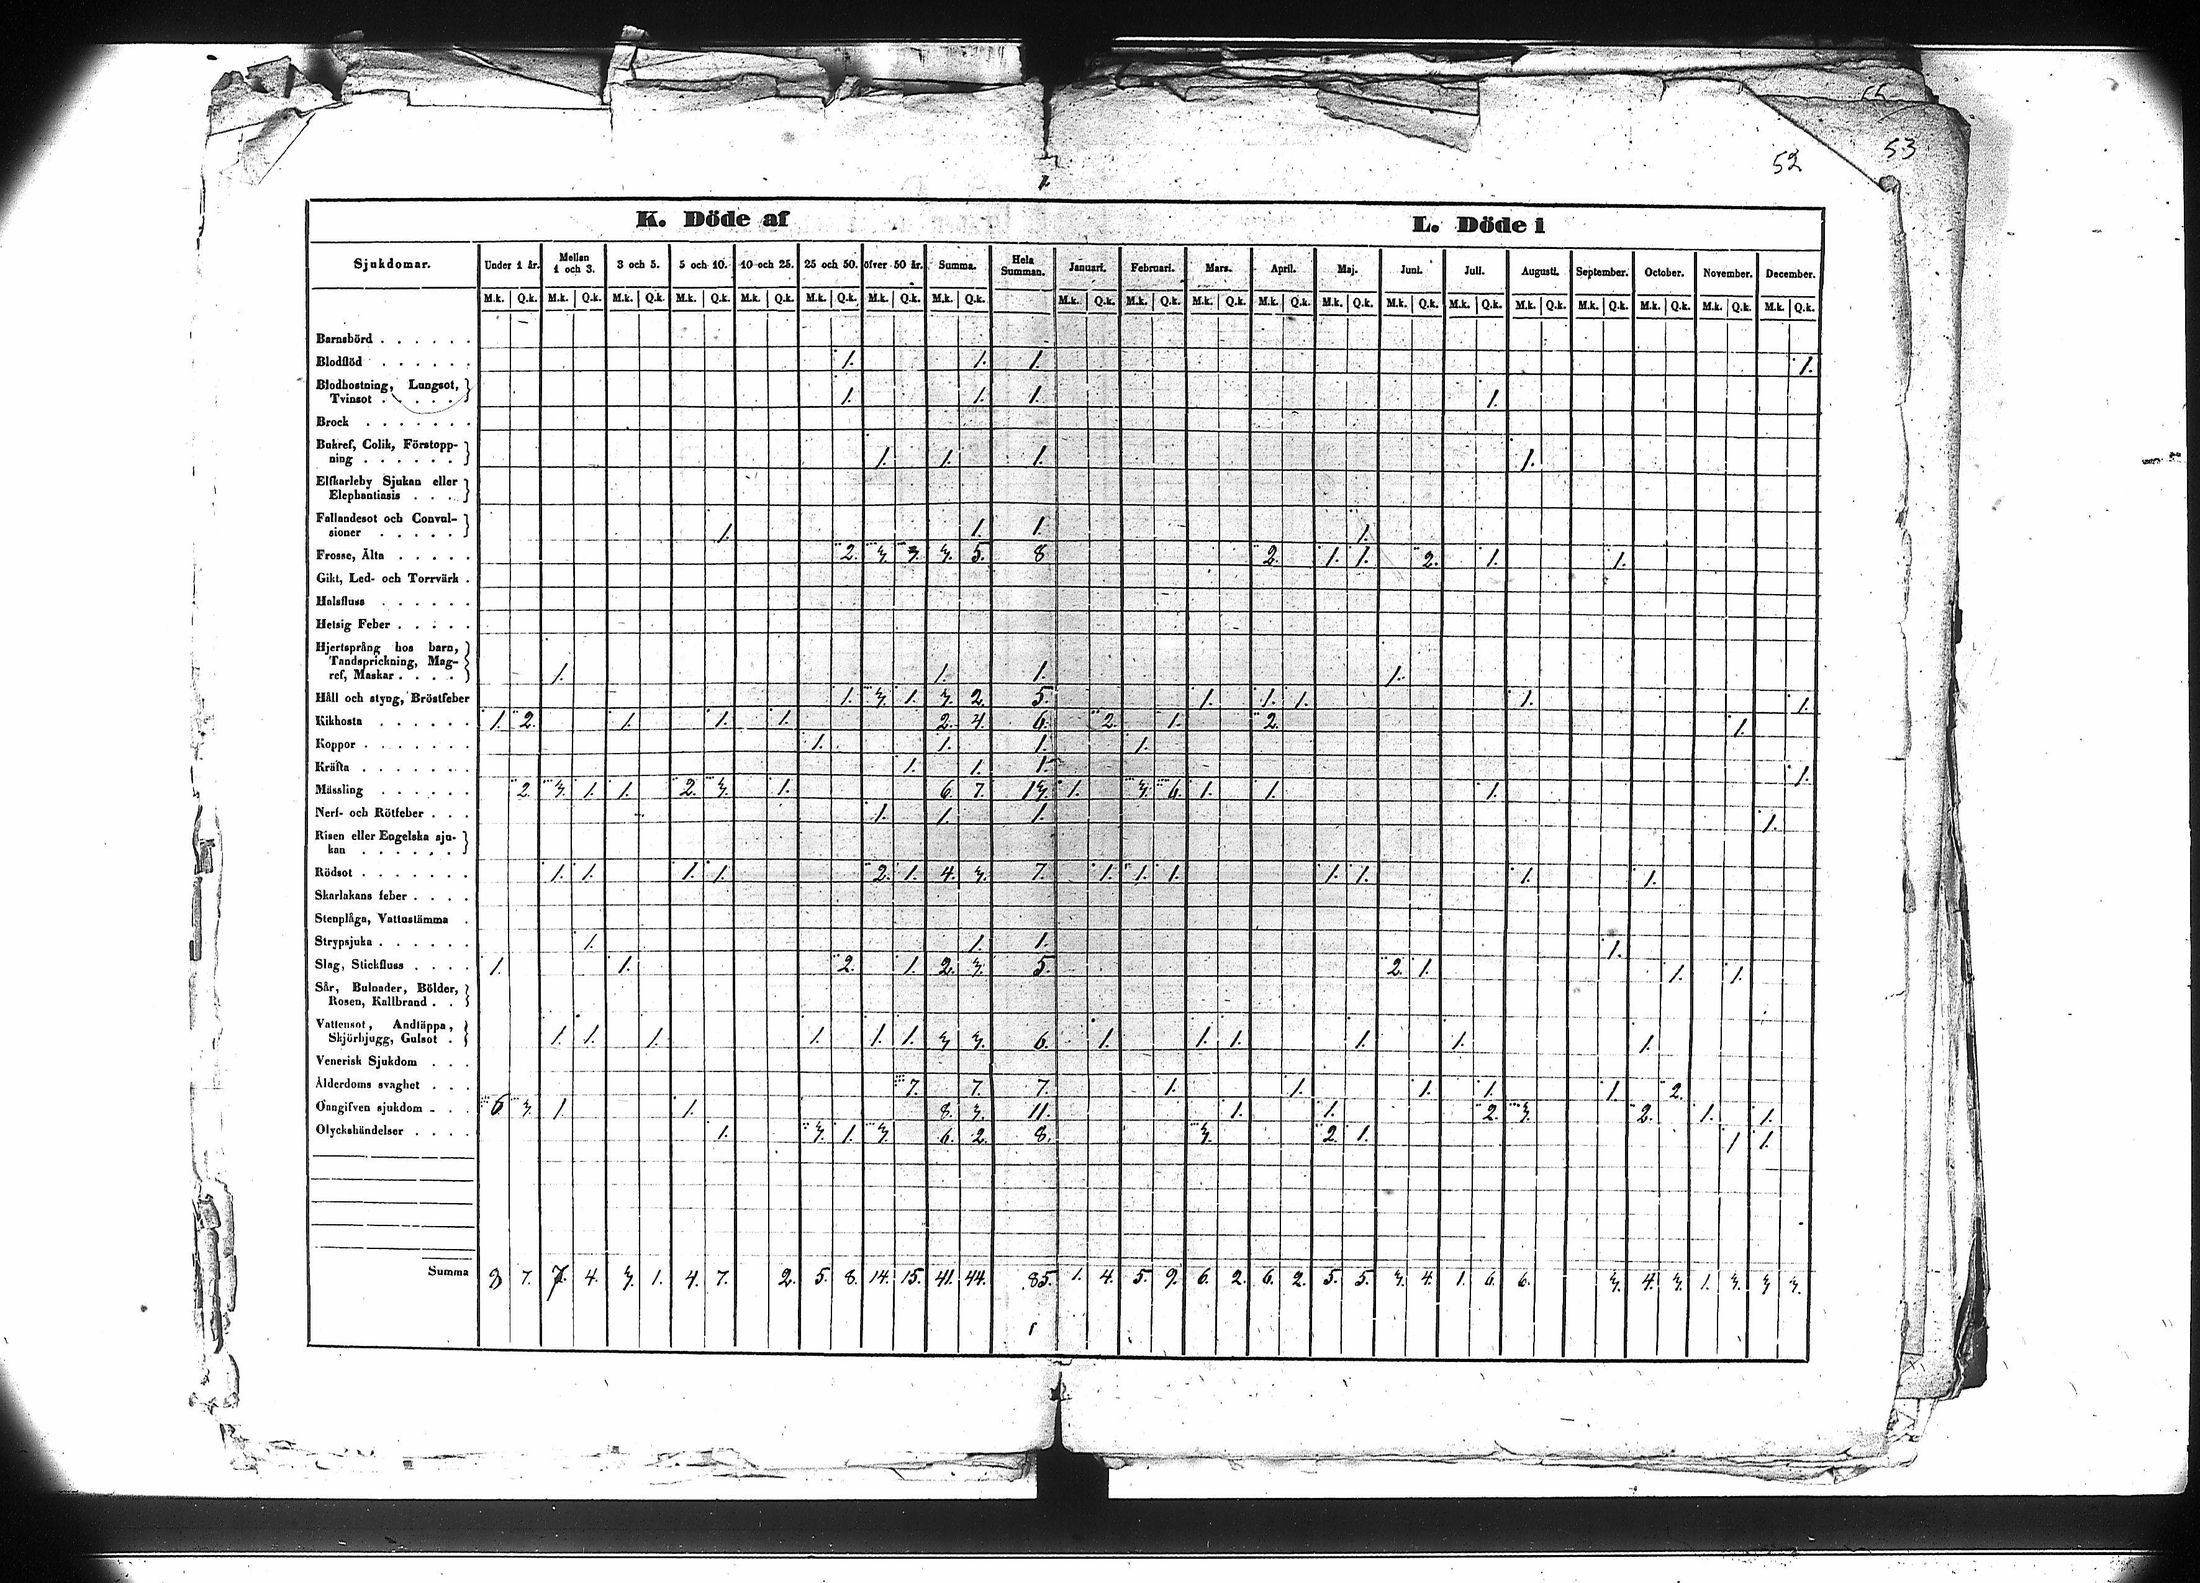 52
53
K. Döde af
L. Döde i
Sjukdomar. Under 1 år. Mellan 1 och 3. 3 och 5. 5 och 10. 10 och 25. 25 och 50. öfver 50 år. Summa. Hela Summan. Januari. Februari. Mars. April. Maj. Juni. Juli. Augusti. September. October. November. December.
M.k. Q.k. M.k. Q.k. M.k. Q.k. M.k. Q.k. M.k. Q.k. M.k. Q.k. M.k. Q.k. M.k. Q.k. M.k. Q.k. M.k. Q.k. M.k. Q.k. M.k. Q.k. M.k. Q.k. M.k. Q.k. M.k. Q.k. M.k. Q.k. M.k. Q.k. M.k. Q.k. M.k. Q.k. M.k. Q.k.
Barnsbörd . . . . . .
Blodflöd . . . . . . 1. 1. 1. 1.
Blodhostning, Lungsot,
Tvinsot . . . . . 1. 1. 1. 1.
Brock . . . . . . .
Bukref, Colik, Förstopp-
ning . . . . . . 1. 1. 1. 1.
Elfkarleby Sjukan eller
Elephantiasis . . .
Fallandesot och Convul-
sioner . . . . . 1. 1. 1. 1.
Frosse, Älta . . . . . 2. 3. 3. 3. 5. 8 2. 1. 1. 2. 1. 1.
Gikt, Led- och Torrvärk .
Halsfluss . . . . . .
Hetsig Feber . . . . .
Hjertsprång hos barn,
Tandsprickning, Mag-
ref, Maskar . . . . 1. 1. 1. 1.
Håll och styng, Bröstfeber 1. 3. 1. 3. 2. 5. 1. 1. 1. 1. 1.
Kikhosta . . . . . . 1. 2. 1. 1. 1. 2. 4. 6. 2. 1. 2. 1.
Koppor . . . . . . . 1. 1. 1. 1.
Kräfta . . . . . . . 1. 1. 1. 1.
Mässling . . . . . . 2. 3. 1. 1. 2. 3. 1. 6. 7. 13. 1. 3. 6. 1. 1. 1.
Nerf- och Rötfeber . . . 1. 1. 1. 1.
Risen eller Engelska sju-
kan . . . . . .
Rödsot . . . . . . . 1. 1. 1. 1. 2. 1. 4. 3. 7. 1. 1. 1. 1. 1. 1. 1.
Skarlakans feber . . . .
Stenplåga, Vattustämma .
Strypsjuka . . . . . . 1. 1. 1. 1.
Slag, Stickfluss . . . . 1. 1. 2. 1. 2. 3. 5. 2. 1. 1. 1.
Sår, Bulnader, Bölder,
Rosen, Kallbrand . .
Vattensot, Andtäppa,
Skjörbjugg, Gulsot . 1. 1. 1. 1. 1. 1. 3. 3. 6. 1. 1. 1. 1. 1. 1.
Venerisk Sjukdom . . .
Ålderdoms svaghet . . . 7. 7. 7. 1. 1. 1. 1. 1. 2.
Onngifven sjukdom . . 6. 3. 1. 1. 8. 3. 11. 1. 1. 2. 3. 2. 1. 1.
Olyckshändelser . . . . 1. 3. 1. 3. 6. 2. 8. 3. 2. 1. 1 1.
Summa 7. 7. 4. 3. 1. 4. 7. 2. 5. 8. 14. 15. 41. 44. 85. 1. 4. 5. 9. 6. 2. 6. 2. 5. 5. 3. 4. 1. 6. 6. 3. 4. 3. 1. 3. 3. 3.